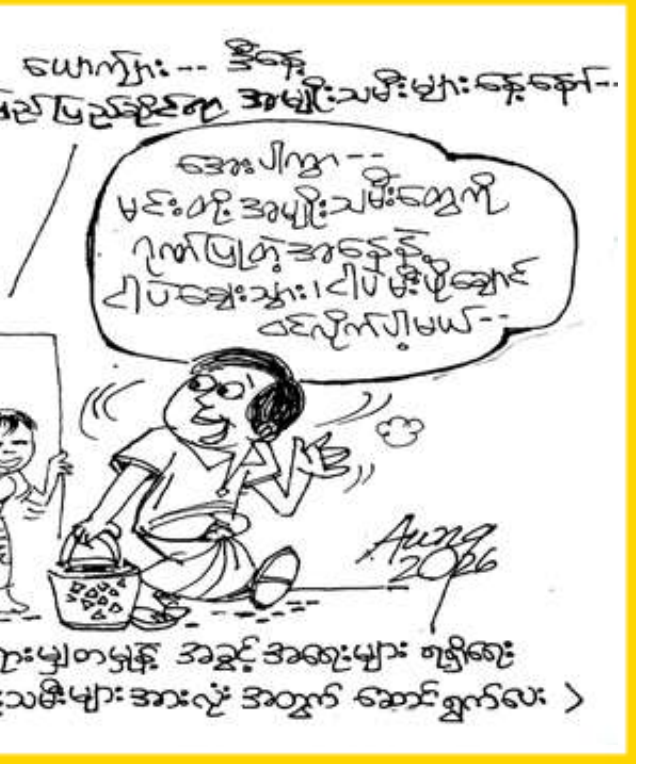 ယောက်ျား--- ဒီနေ့
ပြည်ပြည်ဆိုင်ရာ အမျိုးသမီးများနေ့နော်---
အေးပါကွာ---
မင်းတို့အမျိုးသမီးတွေကို
ဂုဏ်ပြုတဲ့အနေနဲ့
ငါပဲဈေးသွား၊ ငါပဲမီးဖိုချောင်
ဝင်လိုက်ပါ့မယ်---
Aung
2026
မျှတမှုနဲ့ အခွင့်အရေးများ ရရှိရေး
သမီးများအားလုံး အတွက် ဆောင်ရွက်ပေး >